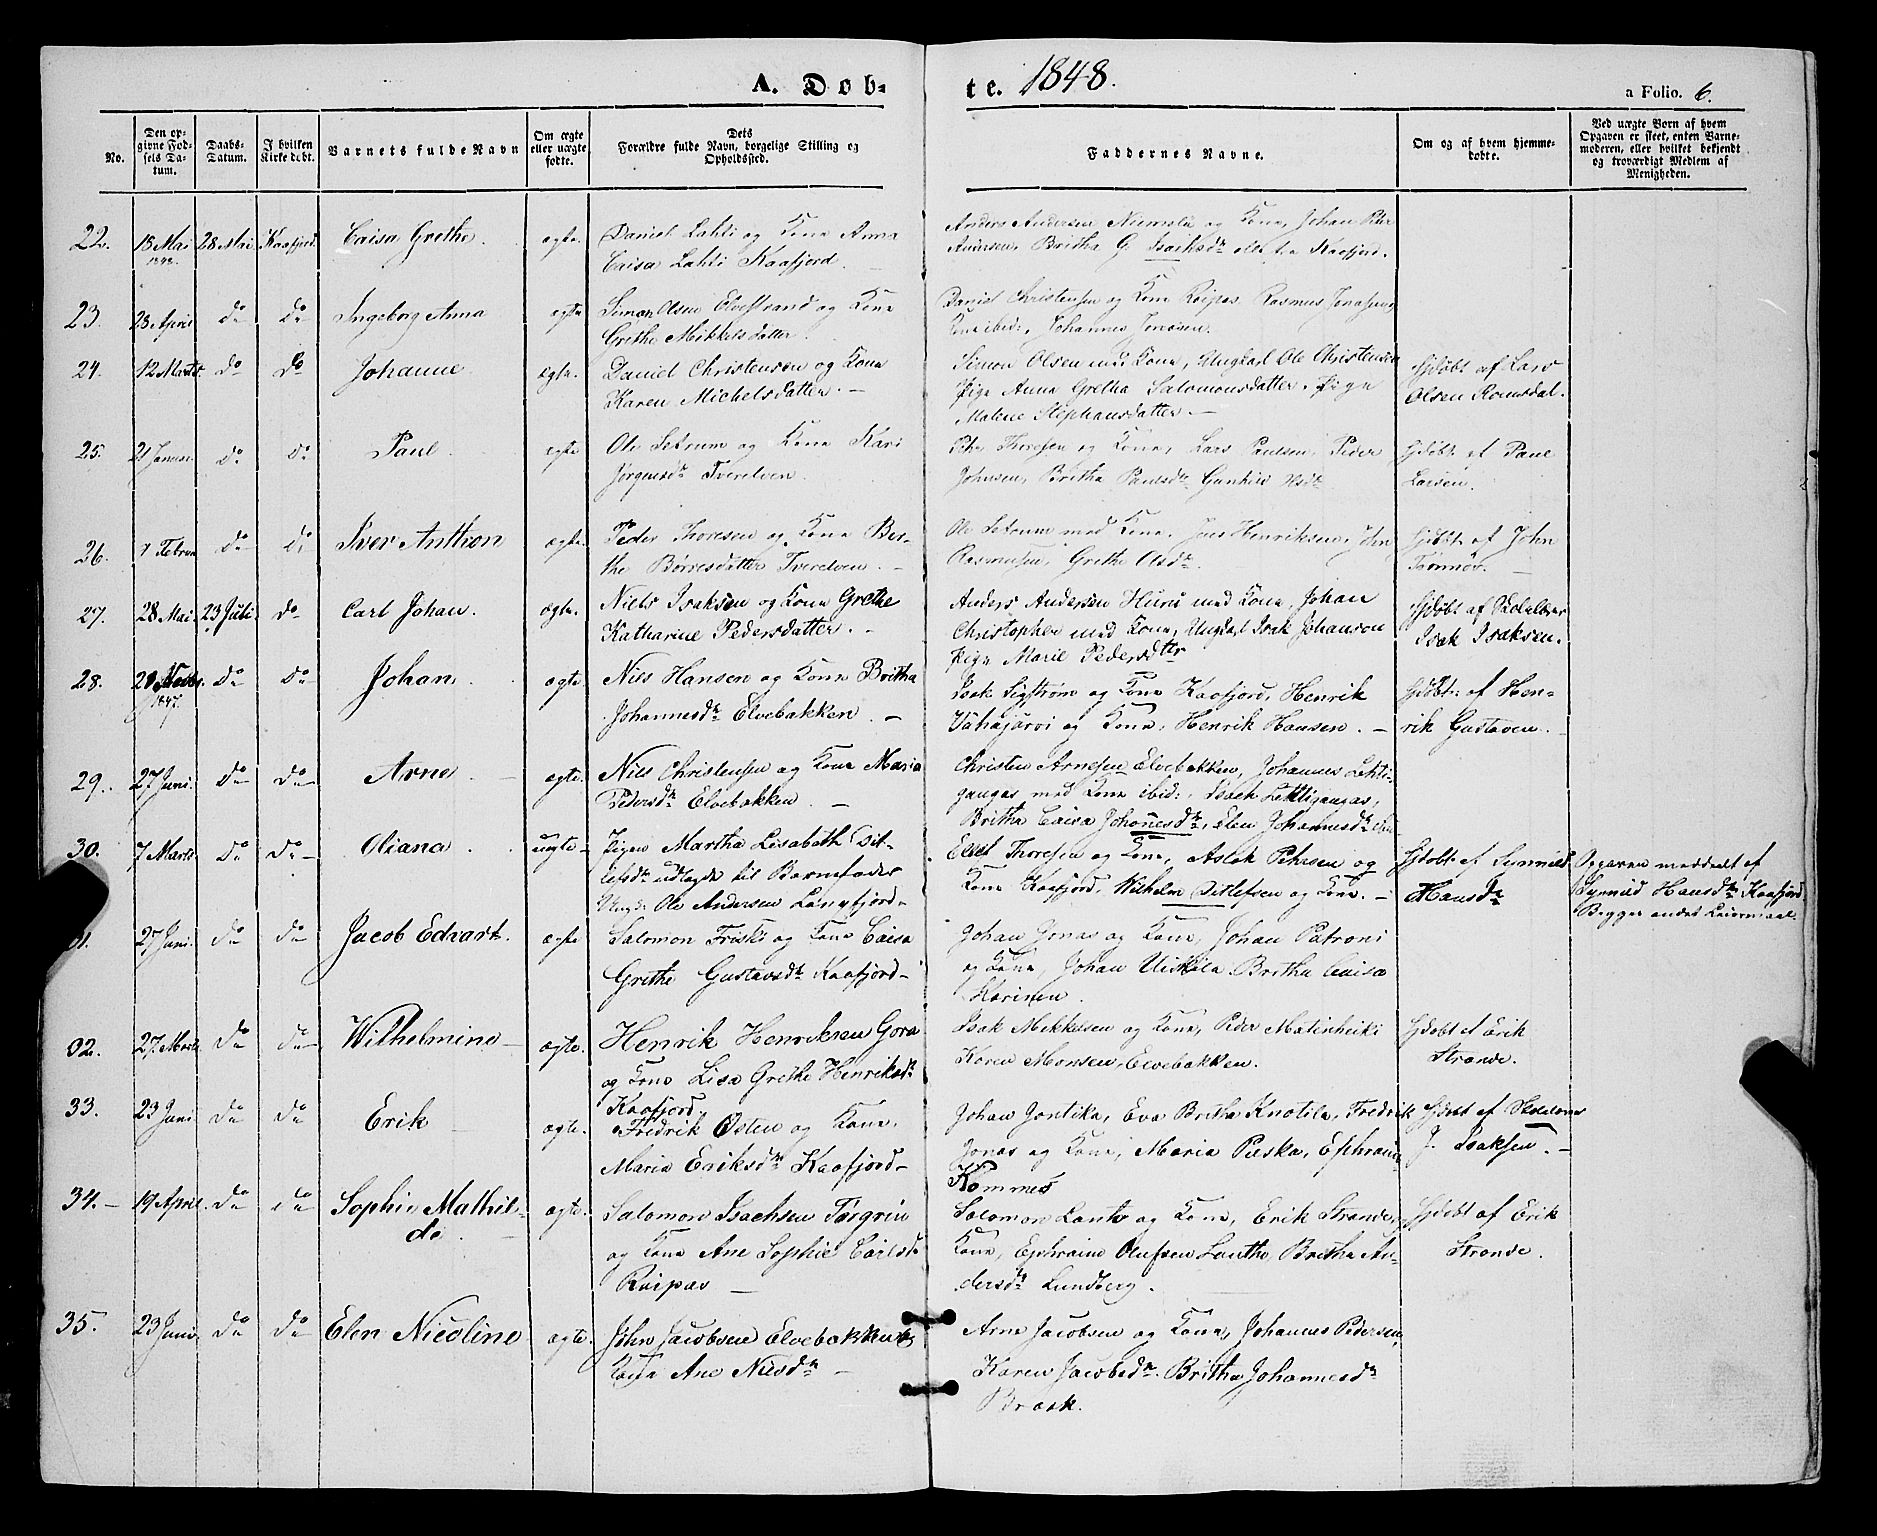 A. Døb- te. 1848. a Folio. 6.
No.
Den op-
givne Fød-
sels Da-
tum.
Daabs-
Datum.
I hvilken
Kirke døbt.
Barnets fulde Navn
Om ægte
eller uægte
fødte.
Dets
Forældre fulde Navn, borgelige Stilling og
Opholdssted.
Faddernes Navne.
Om og af hvem hjemme-
døbte.
Ved uægte Børn af hvem
Opgaven er skeet, enten Barne-
moderen, eller hvilket bekjendt
og troværdigt Medlem af
Menigheden.
22. 18 Mai 1848. 28 Mai Kaafjord. Caisa Grethe. ægte.
Daniel Lahti og Kone Anna
Caisa Lahti Kaafjord. –
Anders Andersen Niemela og Kone, Johan Peter
Britha G. Isachsdr. alle fra Kaafjord.
23. 23 April do do Ingeborg Anna ægte
Simon Olsen Elvestrand og Kone
Grethe Mikkelsdatter.
Daniel Christensen og Kone Raipas. Rasmus
Kone ibid:, Johannes Jensen.
24. 12 Marts. do do Johanne ægte.
Daniel Christensen og Kone
Karen Michelsdatter. –
Simon Olsen med Kone, Ungkarl Ole Christensen
Pige Anna Gretha Salomonsdatter. Pige
Malene Stephansdatter. –
Hjdøbt af Lars
Olsen Romsdal.
25. 21 Januar. do do Paul. ægte
Ole Setrum og Kone Kari
Jørgensdr. Tverelven.
Peder Thoresen og Kone, Lars Paulsen, Peder
Johnsen, Britha Paulsdr.
Hjdøbt af Paul
Larsen.
26. 7 Februar do do Iver Anthon ægte.
Peder Thoresen og Kone Ber-
the Børresdatter Tverelven. –
Ole Setrum med Kone. Jens Henriksen, John
Rasmussen, Grethe Olsdr.
Hjdøbt af John
Trønnes. –
27. 28 Mai. 23 Juli. do Carl Johan. ægte.
Niels Isaksen og Kone Grethe
Katharine Pedersdatter. –
Anders Andersen Huru med Kone, Johan
Christopher med Kone, Ungkarl Isak Johanson
Pige Marie Pedersdtr
Hjdøbt af Skolelærer
Isak Isaksen.
28. 1847. do do Johan. ægte
Nils Hansen og Kone Britha
Johannesdr. Elvebakken. –
Isak Sigstrøm og Kone Kaafjord, Henrik
Vähäjärvi og Kone, Henrik Hansen. –
Hjdøbt: af Hen-
rik Gustaven.
29. 27 Juni. do do Arne ægte.
Nils Christensen og Kone Maria
Pedersdr. Elvebakken. –
Christen Arnesen Elvebakken, Johannes Lehti-
gangas med Kone ibid:, Isach Lehtigangas,
Britha Caisa Johannesdr., Elen Johannesdr.
30. 7 Marts. do do Oliana. uægte
Pigen Martha Lisabeth Dit-
lefsdr. udlagde til Barnefader
Ungk: Ole Andersen Langfjord–
Thoresen og Kone, Aslak Pehrsen og
Kone Kaafjord. Wilhelm Ditlefsen og Kone. –
Hjdøbt. af Synnild
Hansdr.
Opgaven meddeelt af
Synnild Hansdr. Kaafjord
Begges andet Leiermaal.
31. 27 Juni. do do Jacob Edvart. ægte
Salomon Friski og Kone Caisa
Grethe Gustavsdr. Kaafjord–
Johan Jonas og Kone, Johan Patroni
og Kone, Johan Uiskila. Britha Caisa
Karinen.
32. 27 Marts do do Wilhelmine ægte.
Henrik Henriksen Gora
og Kone Lisa Grethe Henriksdr.
Kaafjord.
Isak Mikkelsen og Kone, Peder Matinheiki
Karen Monsen, Elvebakken.
Hjdøbt af Erik
Strande.
33. 23 Juni do do Erik ægte.
Fredrik Østen og Kone.
Maria Eriksdr. Kaafjord–
Johan Jontika, Eva Britha Knotila, Fredrik
Jonas og Kone, Maria Pieska, Ephraim
Kommes
Hjdøbt af Skolelærer
J. Isaksen. –
34. – 19 April. do do Sophie Mathil-
de. ægte.
Salomon Isachsen Törgrin
og Kone Ane Sophie Carlsdr
Raipas –
Salomon Lantto og Kone, Erik Strande,
Kone, Ephraim Olufsen Lantto, Britha An-
dersdr. Lundberg.
Hjdøbt af Erik
Strande.
35. 23 Juni do do Elen Nicoline ægte.
John Jacobsen Elvebakken og
Kone Ane Nilsdr. –
Arne Jacobsen og Kone, Johannes Pedersen,
Karen Jacobsdr. Britha Johannesdr.
Brask.